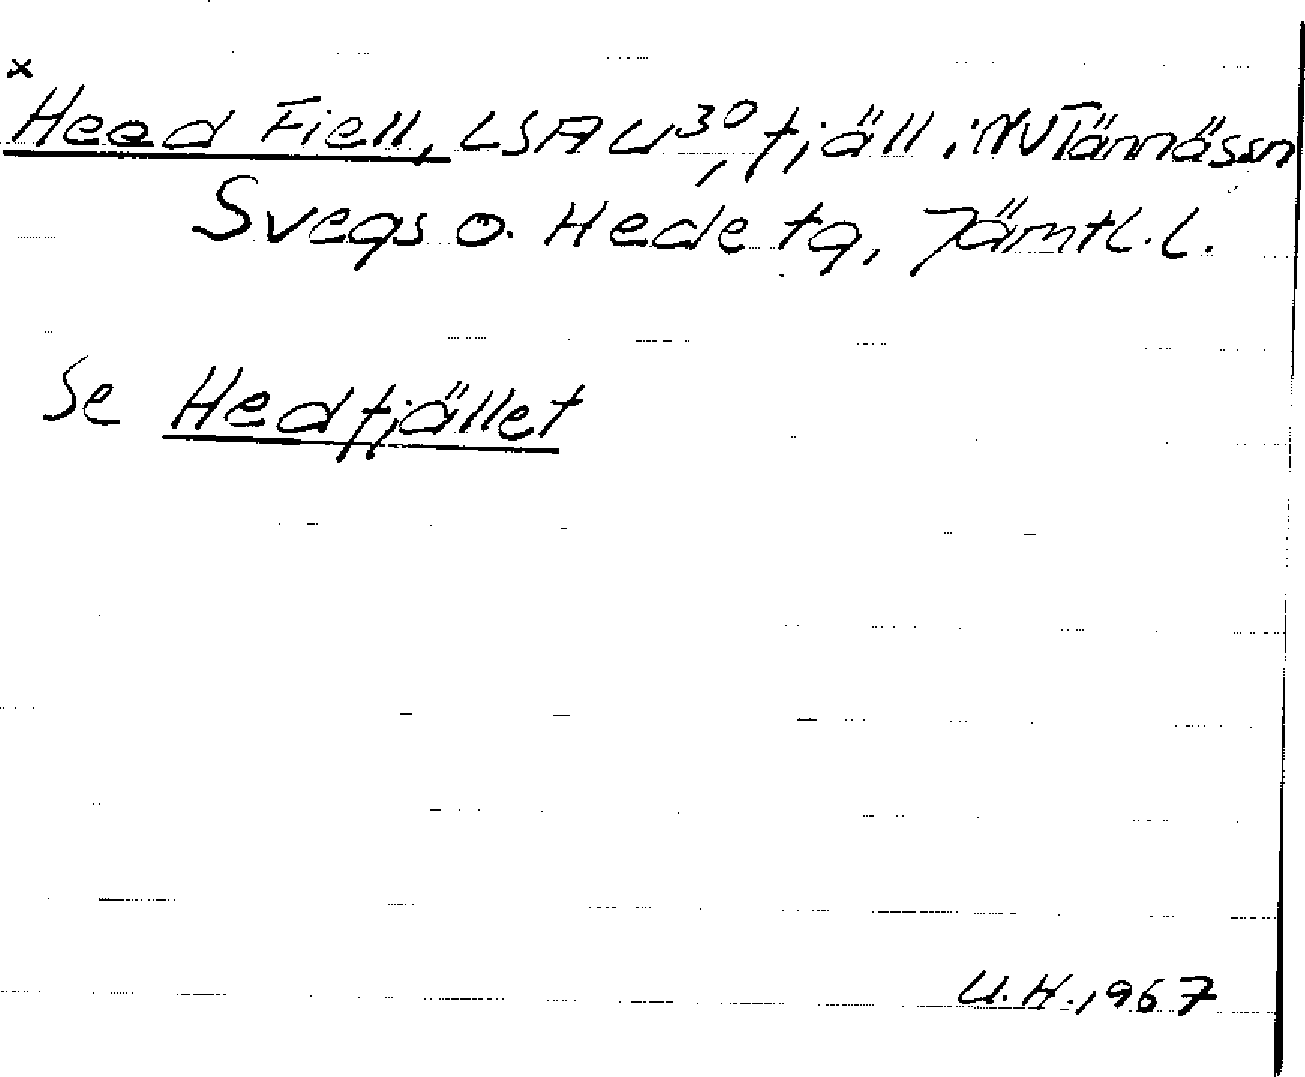 x
Heed Fiell, LSA U³⁰, fjäll i NV Tännässn
Svegs o. Hede tg, Jämtl. l.
Se Hedfjället
U.H. 1967